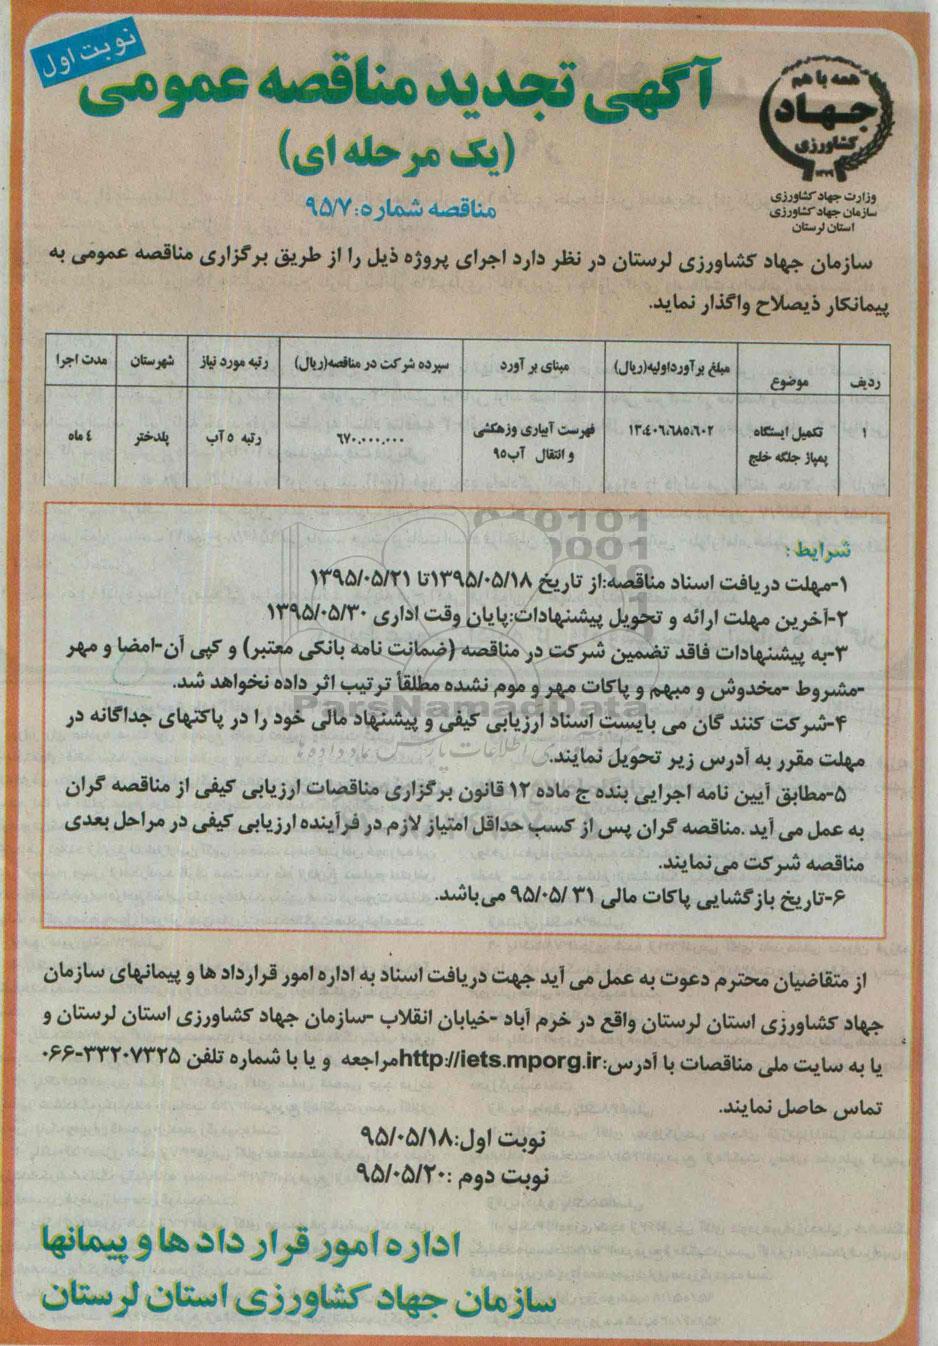 نوبت اول
آگهی تجدید مناقصه عمومی
(یک مرحله ای)
مناقصه شماره: ۹۵/۷
همه با هم
جهاد
کشاورزی
وزارت جهاد کشاورزی
سازمان جهاد کشاورزی
استان لرستان
سازمان جهاد کشاورزی لرستان در نظر دارد اجرای پروژه ذیل را از طریق برگزاری مناقصه عمومی به
پیمانکار ذیصلاح واگذار نماید.
ردیف موضوع مبلغ برآورداولیه(ریال) مبنای بر آورد سپرده شرکت در مناقصه(ریال) رتبه مورد نیاز شهرستان مدت اجرا
۱ تکمیل ایستگاه ۱۳،۴۰۶،۶۸۵،۶۰۲ فهرست آبیاری وزهکشی ۶۷۰،۰۰۰،۰۰۰ رتبه ۵ آب پلدختر ٤ ماه
پمپاژ جلگه خلج و انتقال آب۹۵
شرایط :
۱-مهلت دریافت اسناد مناقصه:از تاریخ ۱۳۹۵/۰۵/۱۸تا ۱۳۹۵/۰۵/۲۱
۲-آخرین مهلت ارائه و تحویل پیشنهادات:پایان وقت اداری ۱۳۹۵/۰۵/۳۰
۳-به پیشنهادات فاقد تضمین شرکت در مناقصه (ضمانت نامه بانکی معتبر) و کپی آن-امضا و مهر
-مشروط -مخدوش و مبهم و پاکات مهر و موم نشده مطلقاً ترتیب اثر داده نخواهد شد.
ParsNamadData
۴-شرکت کنند گان می بایست اسناد ارزیابی کیفی و پیشنهاد مالی خود را در پاکتهای جداگانه در
مهلت مقرر به آدرس زیر تحویل نمایند.
۵-مطابق آیین نامه اجرایی بنده ج ماده ۱۲ قانون برگزاری مناقصات ارزیابی کیفی از مناقصه گران
به عمل می آید .مناقصه گران پس از کسب حداقل امتیاز لازم در فرآینده ارزیابی کیفی در مراحل بعدی
مناقصه شرکت می نمایند.
۶-تاریخ بازگشایی پاکات مالی ۳۱ /۹۵/۰۵ می باشد.
از متقاضیان محترم دعوت به عمل می آید جهت دریافت اسناد به اداره امور قرارداد ها و پیمانهای سازمان
جهاد کشاورزی استان لرستان واقع در خرم آباد -خیابان انقلاب -سازمان جهاد کشاورزی استان لرستان و
یا به سایت ملی مناقصات با آدرس:http://iets.mporg.irمراجعه و یا با شماره تلفن ۳۳۲۰۷۳۲۵-۰۶۶
تماس حاصل نمایند.
نوبت اول:۹۵/۰۵/۱۸
نوبت دوم :۹۵/۰۵/۲۰
اداره امور قرار داد ها و پیمانها
سازمان جهاد کشاورزی استان لرستان